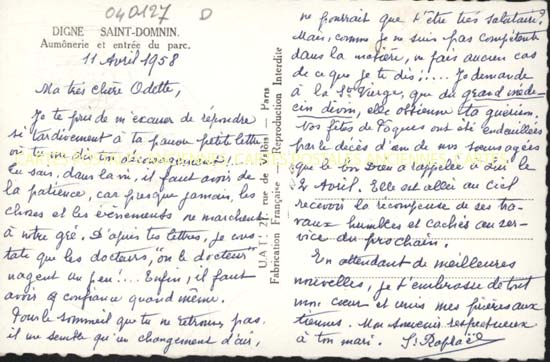 040127 D
DIGNE SAINT-DOMNIN.
Aumônerie et entrée du parc.
11 Avril 1958
Ma très chère Odette,
Je te prie de m'excuser de répondre
si tardivement à ta petite lettre
où tu me dis ton découragement!
Tu sais, dans la vie, il faut avoir de
la patience, car presque jamais, les
choses et les événements ne marchent
à notre gré. D'après tes lettres, je cons-
tate que les docteurs, "ou le docteur"
nagent un peu!... Enfin, il faut
avoir confiance quand même.
Pour le sommeil que tu ne retrouves pas,
il me semble qu'un changement d'air,
U.A.T. : 21, rue de Villon — Paris
Fabrication Française — Reproduction Interdite
ne pourrait que t'être très salutaire?
Mais, comme je ne suis pas compétente
dans la matière, ne fais aucun cas
de ce que je te dis!.... Je demande
à la Ste Vierge, que du grand méde-
cin divin, elle obtienne ta guérison.
Nos fêtes de Pâques ont été endeuillées
par le décès d'une de nos sœurs agées
que le bon Dieu a rappelée à Lui le
2 Avril. Elle est allée au ciel
recevoir la récompense de ses tra-
vaux humbles et cachés au ser-
vice du prochain.
En attendant de meilleures
nouvelles, je t'embrasse de tout
mon cœur et unis mes prières aux
tiennes. Mon souvenir respectueux
à ton mari. Sr Raphaël